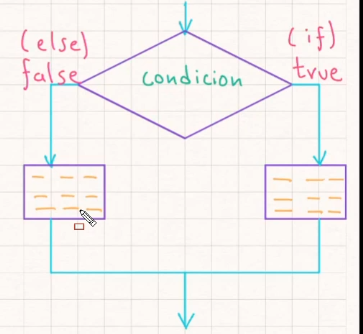 (else)
false
condicion
(if)
true